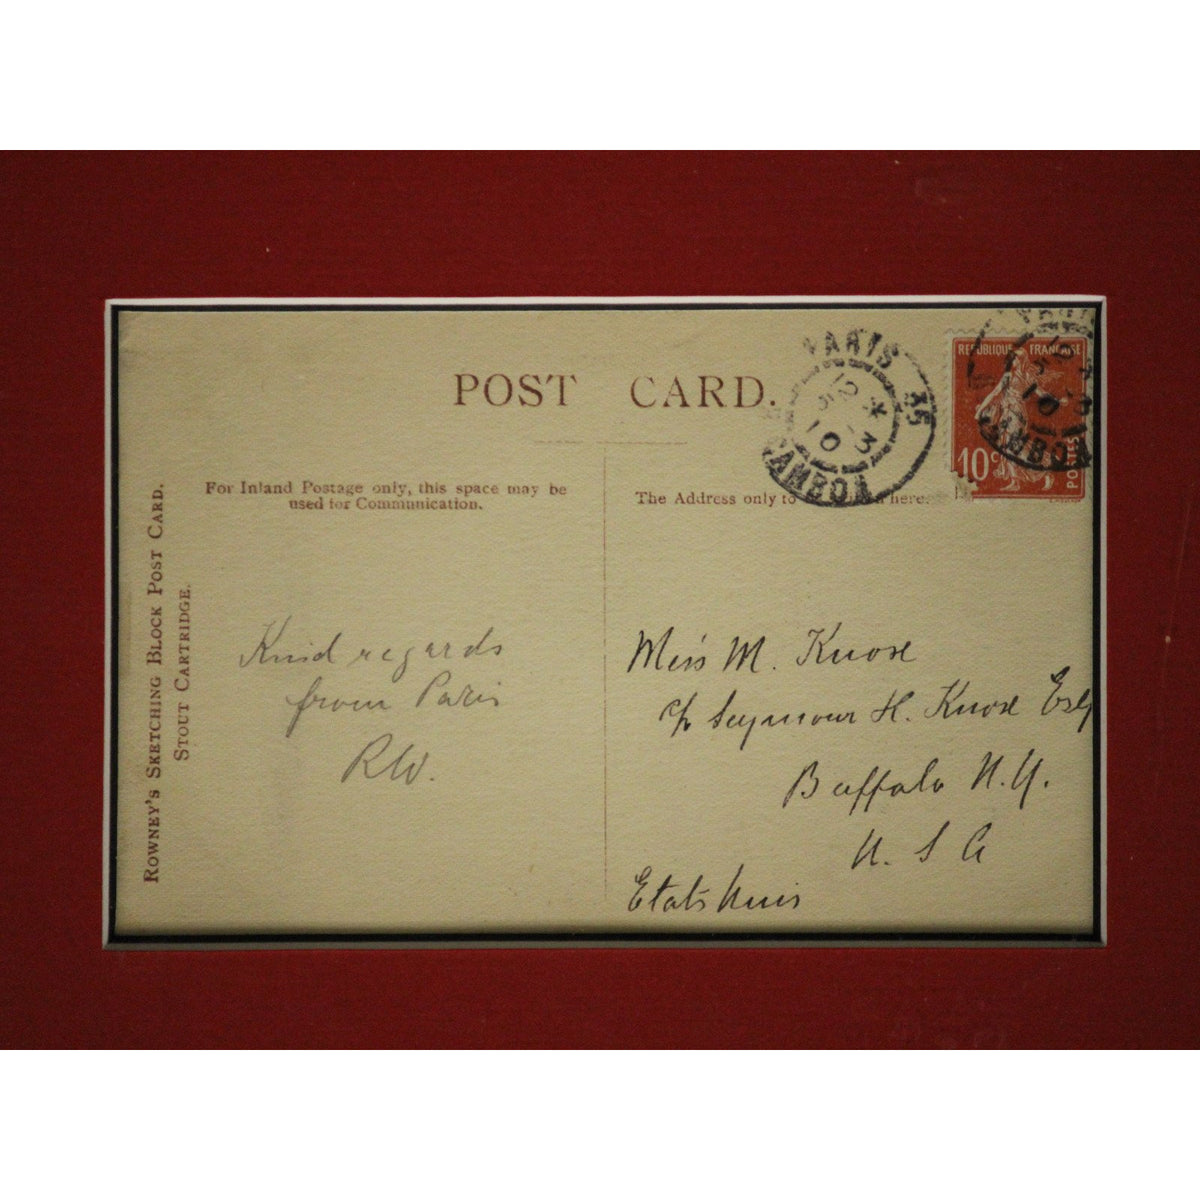 POST CARD.
For Inland Postage only, this space may be
used for Communication.
The Address only to here.
ROWNEY'S SKETCHING BLOCK POST CARD.
STOUT CARTRIDGE.
PARIS 35
CAMBON
REPUBLIQUE FRANÇAISE
10c
POSTES
Kind regards
from Paris
RW.
Miss M. Knox
c/o Seymour H. Knox Esq
Buffalo N.Y.
U. S A
Etats Unis